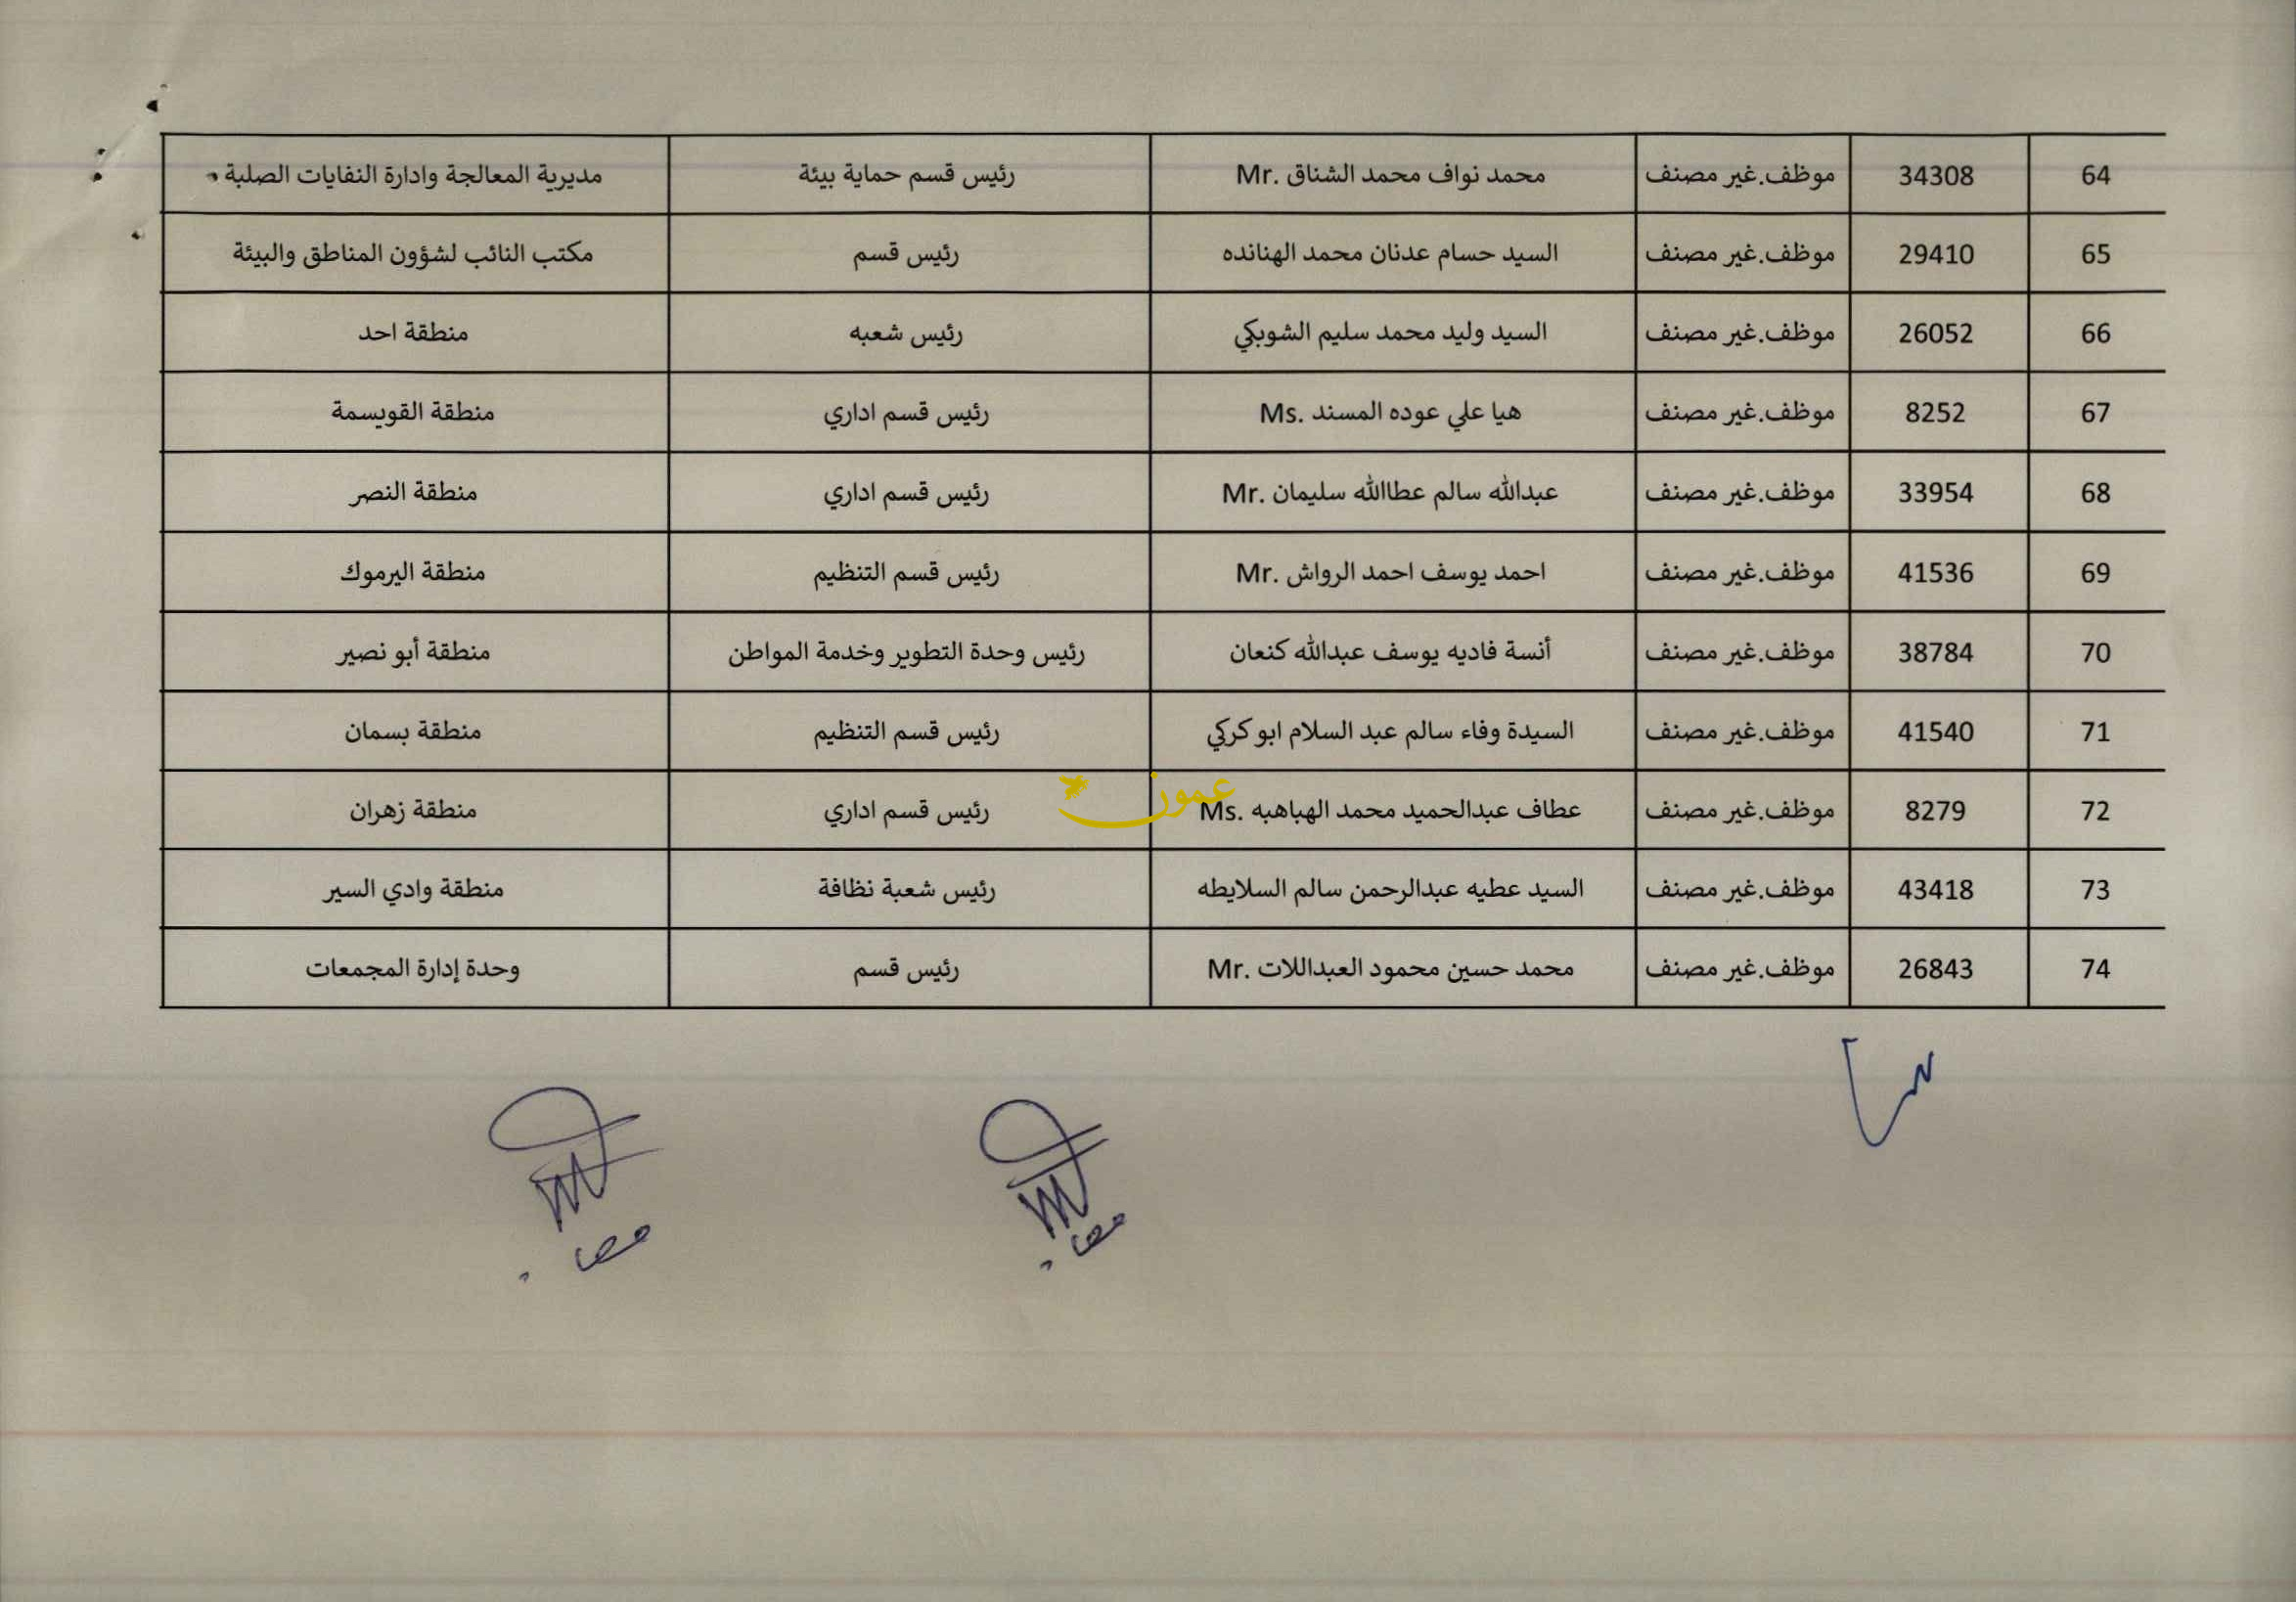 64 34308 موظف.غير مصنف محمد نواف محمد الشناق .Mr رئيس قسم حماية بيئة مديرية المعالجة وادارة النفايات الصلبة
65 29410 موظف.غير مصنف السيد حسام عدنان محمد الهنانده رئيس قسم مكتب النائب لشؤون المناطق والبيئة
66 26052 موظف.غير مصنف السيد وليد محمد سليم الشوبكي رئيس شعبه منطقة احد
67 8252 موظف.غير مصنف هيا علي عوده المسند .Ms رئيس قسم اداري منطقة القويسمة
68 33954 موظف.غير مصنف عبدالله سالم عطاالله سليمان .Mr رئيس قسم اداري منطقة النصر
69 41536 موظف.غير مصنف احمد يوسف احمد الرواش .Mr رئيس قسم التنظيم منطقة اليرموك
70 38784 موظف.غير مصنف أنسة فاديه يوسف عبدالله كنعان رئيس وحدة التطوير وخدمة المواطن منطقة أبو نصير
71 41540 موظف.غير مصنف السيدة وفاء سالم عبد السلام ابو كركي رئيس قسم التنظيم منطقة بسمان
عمون
72 8279 موظف.غير مصنف عطاف عبدالحميد محمد الهباهبه .Ms رئيس قسم اداري منطقة زهران
73 43418 موظف.غير مصنف السيد عطيه عبدالرحمن سالم السلايطه رئيس شعبة نظافة منطقة وادي السير
74 26843 موظف.غير مصنف محمد حسين محمود العبداللات .Mr رئيس قسم وحدة إدارة المجمعات